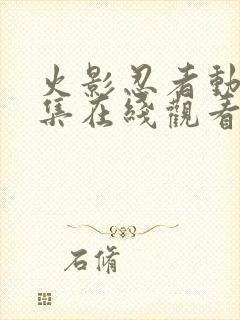 火影忍者動
集在綫觀看
石脩